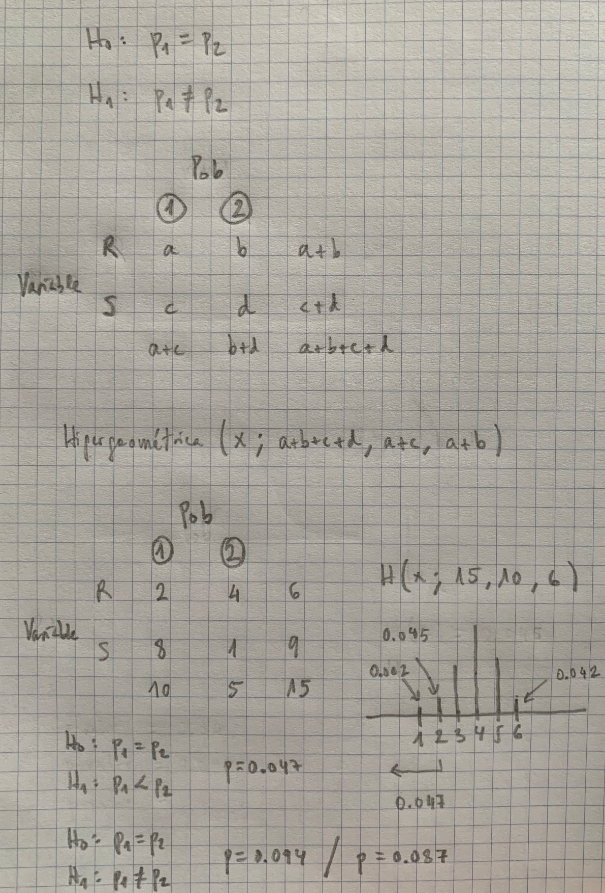 H₀: p₁ = p₂
H₁: p₁ ≠ p₂
Pob
① ②
R a b a+b
Variable
S c d c+d
a+c b+d a+b+c+d
Hipergeométrica (x; a+b+c+d, a+c, a+b)
Pob
① ②
R 2 4 6
Variable
S 8 1 9
10 5 15
H(x; 15, 10, 6)
0.045
0.002
0.042
1 2 3 4 5 6
0.047
H₀: p₁ = p₂
H₁: p₁ < p₂
p=0.047
H₀: p₁ = p₂
H₁: p₁ ≠ p₂
p=0.094 / p=0.087